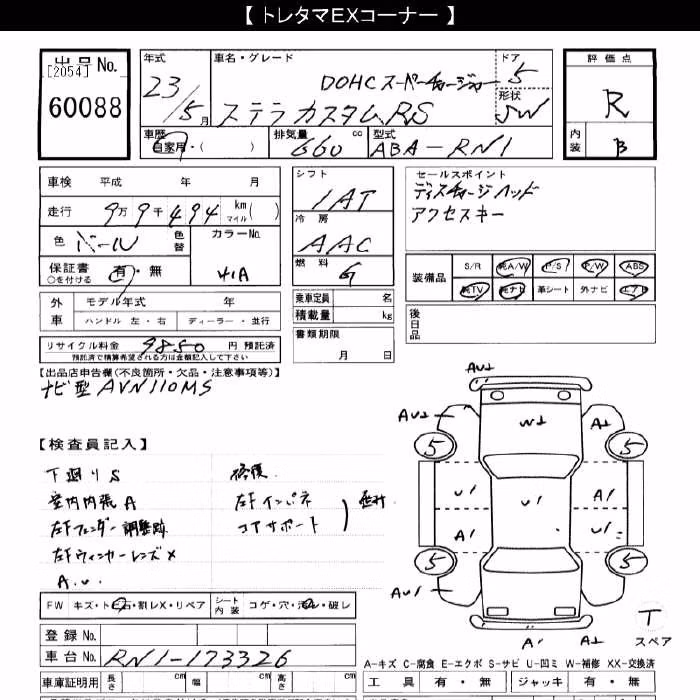 【 トレタマEXコーナー 】
出品 No.
[2054]
60088
年式
23/5月
車名・グレード
DOHC スーパーチャージャー
ステラ カスタム RS
ドア
5
形状
SW
評価点
R
内装
B
車歴
自家用・( )
排気量
660 cc
型式
ABA-RN1
車検 平成 年 月
走行 9万9千494 km マイル ( )
色 パール 色替
カラーNo.
41A
保証書 ○を付ける 有・無
外車
モデル年式 年
ハンドル 左・右 ディーラー・並行
リサイクル料金 9850 円 預託済
預託済で精算希望される方は金額記入して下さい
シフト
IAT
冷房
AAC
燃料
G
乗車定員 名
積載量 kg
書類期限
月 日
セールスポイント
ディスチャージヘッド
アクセスキー
装備品
S/R 純A/W P/S P/W ABS
純TV 純ナビ 革シート 外ナビ エアB
後日品
【出品店申告欄(不良箇所・欠品・注意事項等)】
ナビ型 AVN110MS
【検査員記入】
下廻りS
室内内張A
左Fフェンダー調整跡
左Fウィンカーレンズ×
A.U.
修復
左Fインパネ
コアサポート
FW キズ・トビ石・割レX・リペア
シート内装 コゲ・穴・汚レ・破レ
登録 No.
車台 No. RN1-173326
車庫証明用 長さ cm 幅 cm 高さ cm
AU1
AU1
W1
A1
5
5
U1
U1
A1
A1
U1
5
5
AU1
A1
A1
T
スペア
A-キズ C-腐食 E-エクボ S-サビ U-凹ミ W-補修 XX-交換済
工具 有・無 ジャッキ 有・無